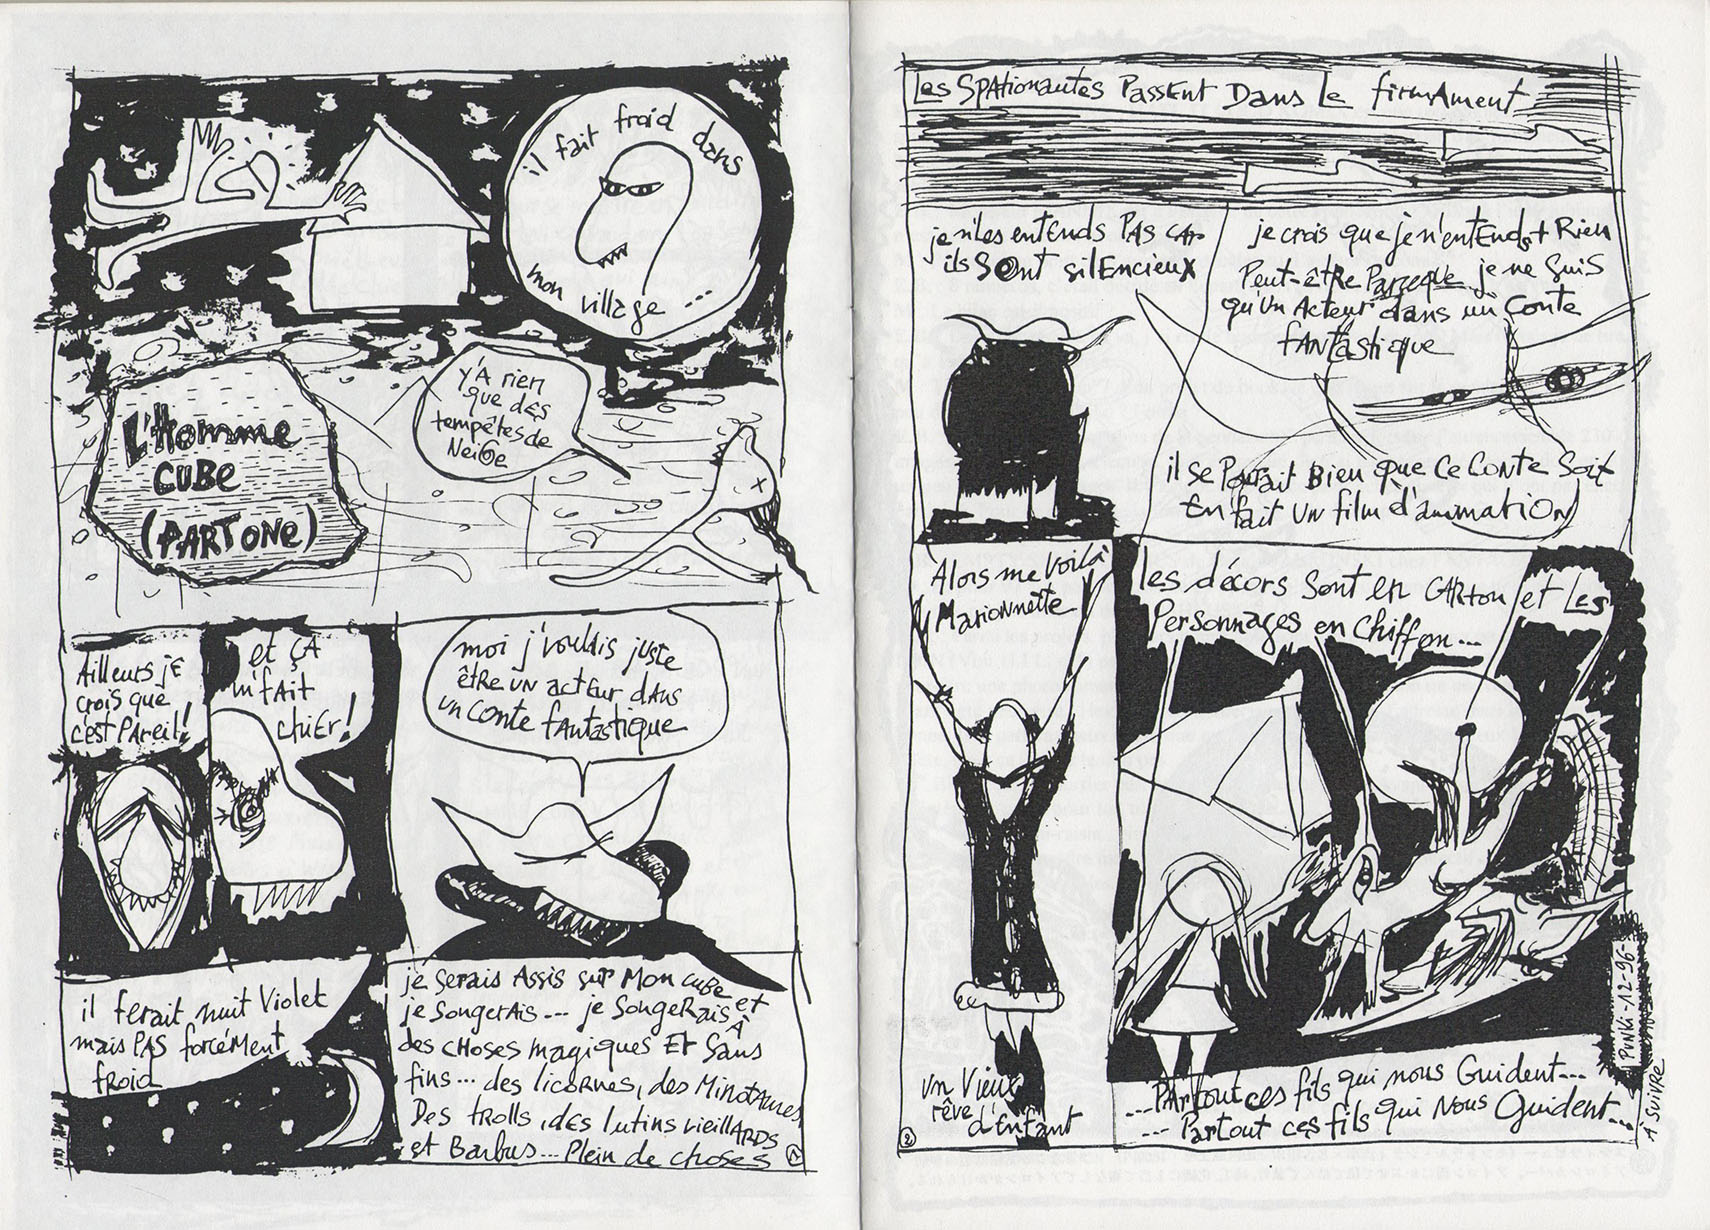 il fait froid dans
mon village ...
L'Homme
CUBE
(PART ONE)
Y'A rien
que des
tempêtes de
NeiGe
Ailleurs jE
crois que
c'est PAreil!
et ÇA
m'fAit
chiEr!
moi j'voulais juste
êtRE UN acteur dAns
un conte fantastique
il ferait nuit Violet
mais PAS forcéMent
froid
je serais Assis sur Mon cuBe et
je SongerAis... je SongeRais À
des choses magiques Et Sans
fins... des licornes, des MinotAures,
Des trolls, dEs lutins vieillARDS
et BArbus... Plein de choses
1
Les SPAtionautes PassEnt Dans Le firmAment
je n'les entEnds PAS cAr
ils SOnt silEncieuX
je crois que je n'entEnds + Rien
Peut-êtRe Parceque je ne Suis
qu'Un Acteur dans un Conte
fANtastique
il se Pourait Bien que Ce Conte Soit
En fait Un film d'animatiON
Alors me Voilà
MArionnette
un Vieux
rêve
d'Enfant
2
les décors Sont en CARton et LEs
PersonnAges en Chiffon...
... PArtout ces fils qui nous Guident...
... Partout ces fils qui Nous Guident...
PUNKi -12-96-
À SuivRe